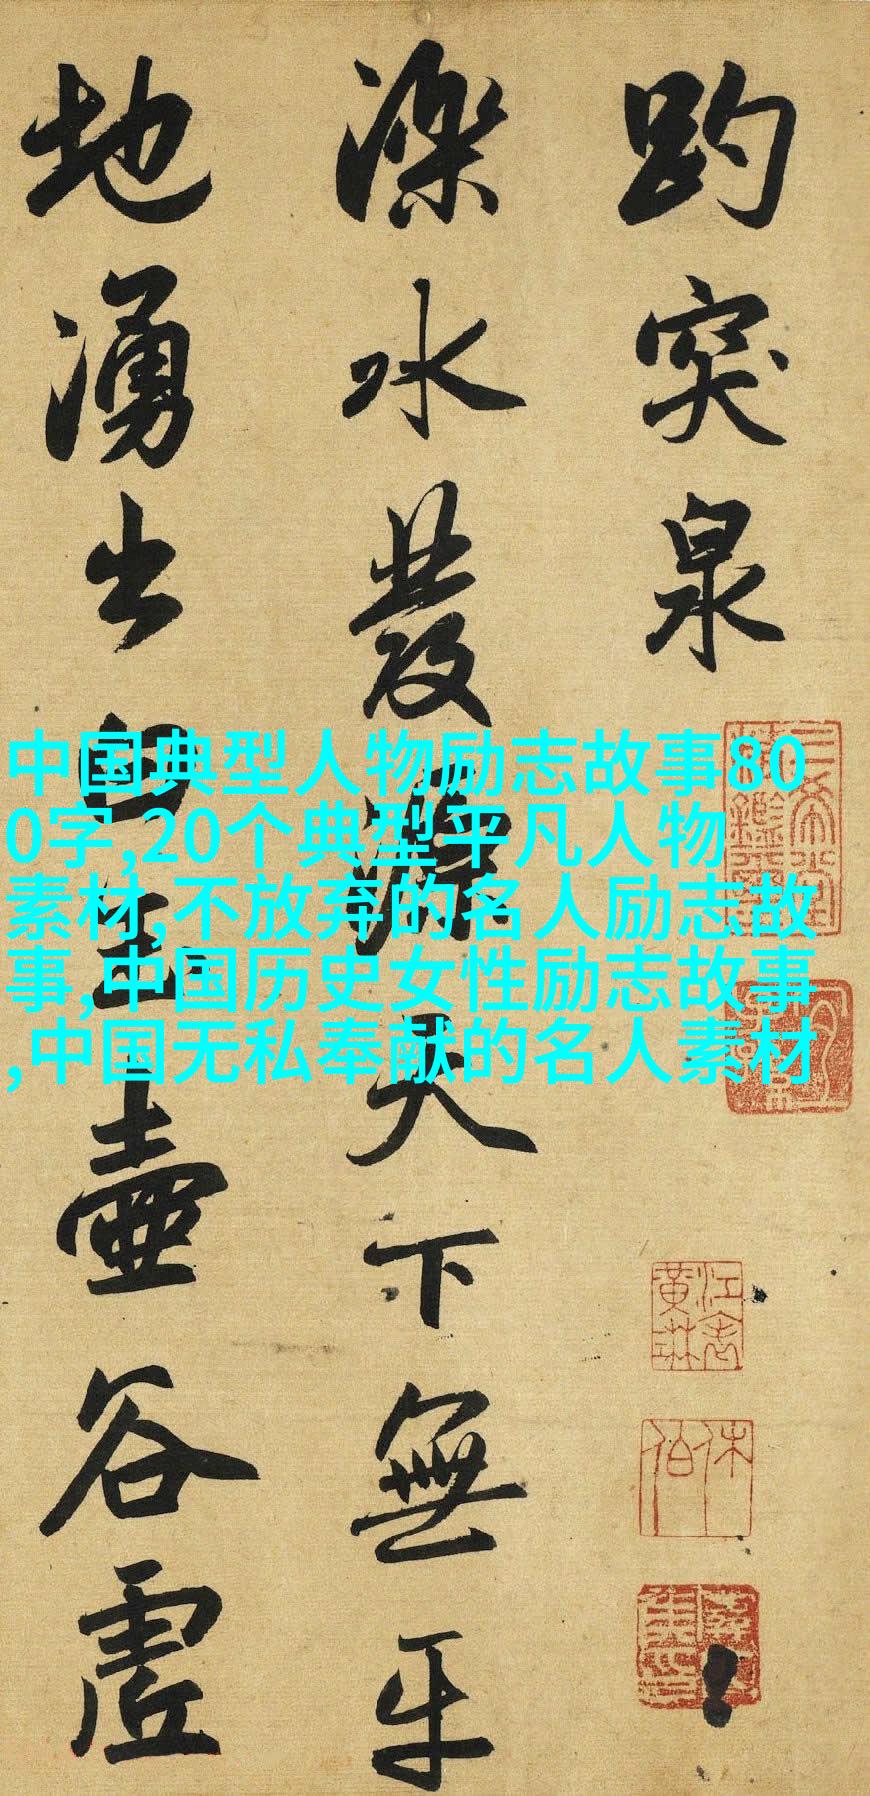 趵突泉
濼水發源天下無平
地湧出白玉壺谷虛
中国典型人物励志故事80
0字,20个典型平凡人物
素材,不放弃的名人励志故
事,中国历史女性励志故事
,中国无私奉献的名人素材